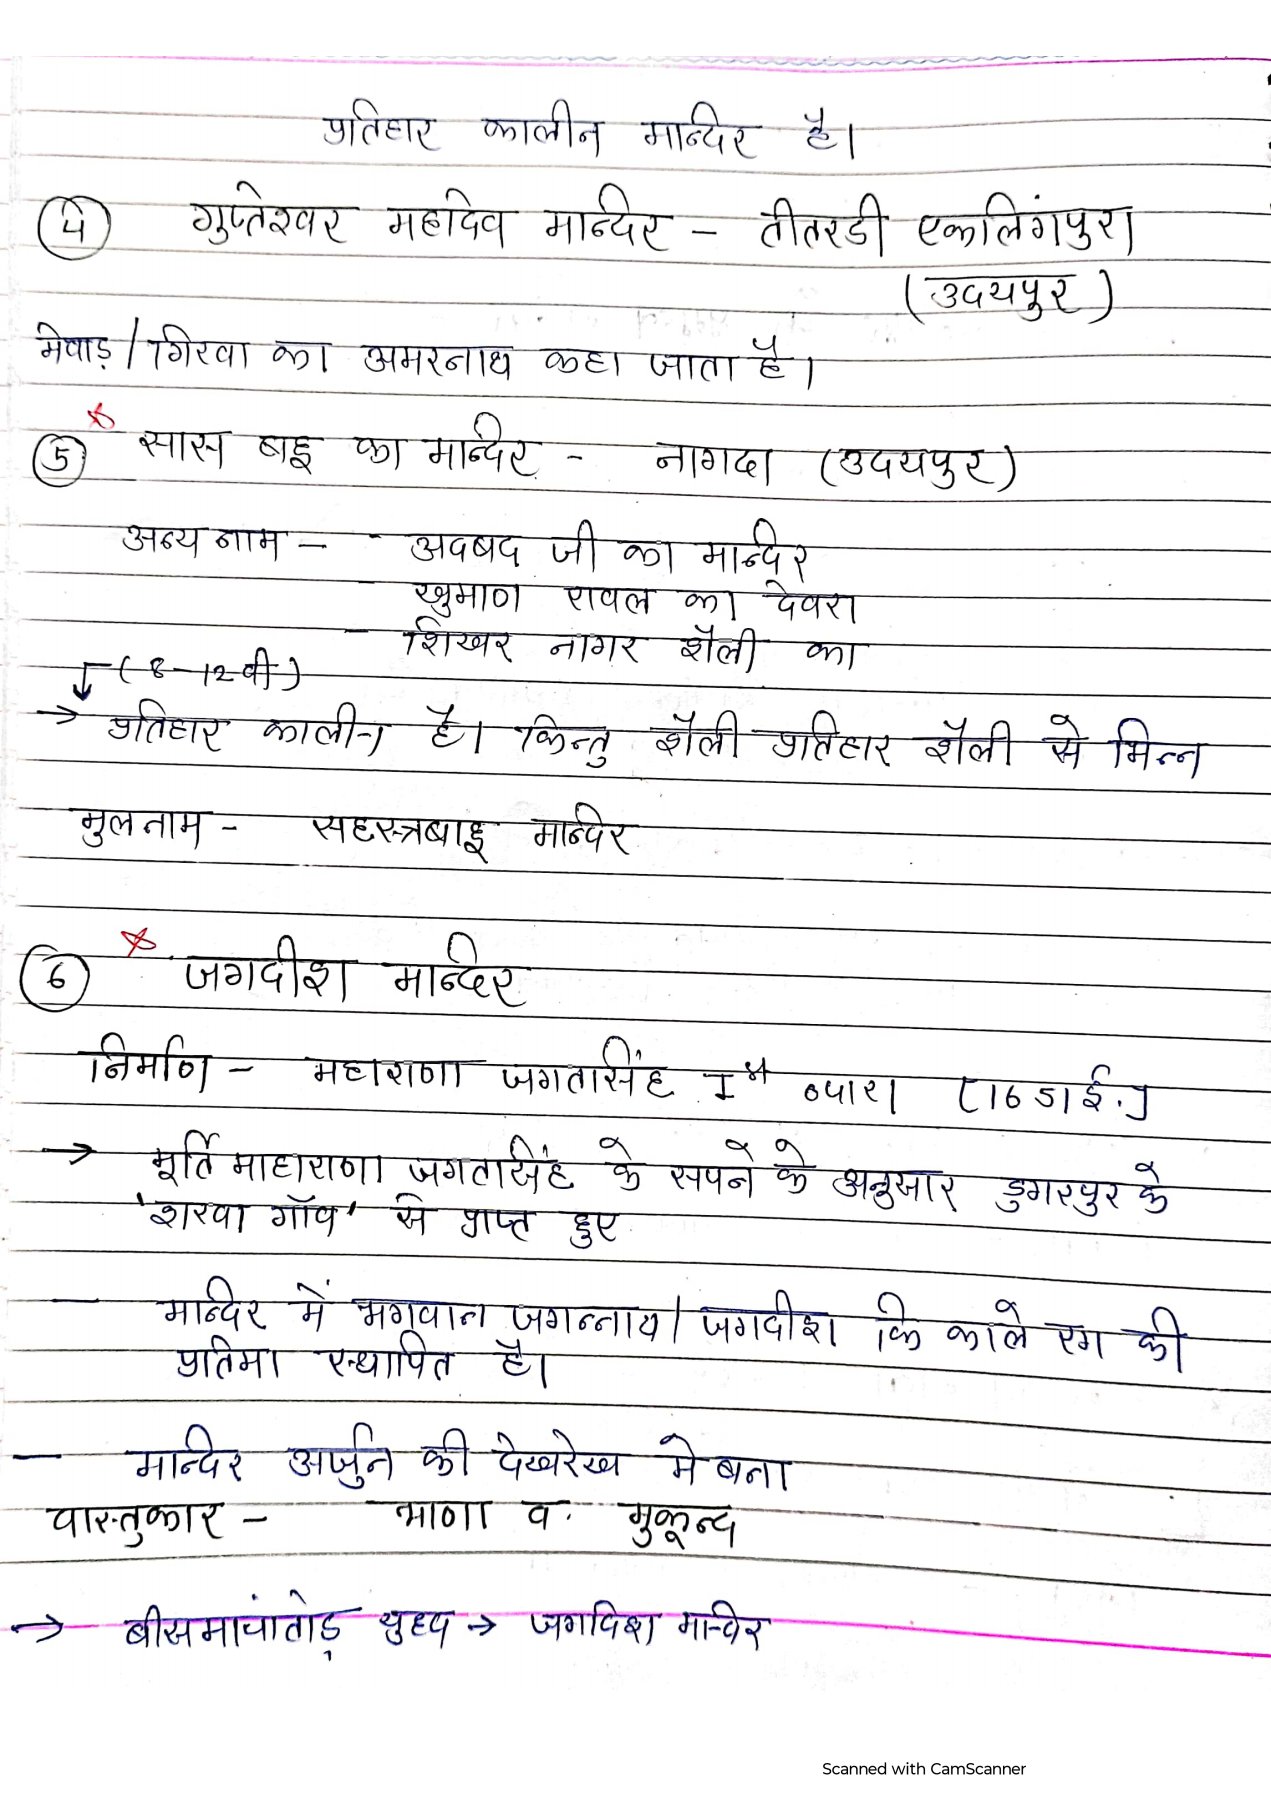 प्रतिहार कालीन मन्दिर है।
4 गुप्तेश्वर महादेव मन्दिर - तीतरडी एकलिंगपुरा
(उदयपुर)
मेवाड़ / गिरवा का अमरनाथ कहा जाता है।
5 सास बहू का मन्दिर - नागदा (उदयपुर)
अन्य नाम - - अदबद जी का मन्दिर
- खुमाण रावल का देवरा
- शिखर नागर शैली का
(8-12वी)
→ प्रतिहार कालीन है। किन्तु शैली प्रतिहार शैली से भिन्न
मुलनाम - सहस्त्रबाहू मन्दिर
6 जगदीश मन्दिर
निर्माण - महाराणा जगतसिंह Ist व्दारा [1651ई.]
→ मूर्ति माहाराणा जगतसिंह के सपने के अनुसार डुगरपुर के
'शरवा गाँव' से प्राप्त हुए
- मन्दिर में भगवान जगन्नाथ / जगदीश कि काले रंग की
प्रतिमा स्थापित है।
- मन्दिर अर्जुन की देखरेख मे बना
वास्तुकार - भाणा व मुकून्द
→ बीसमावांतोड़ युध्द → जगदिश मन्दिर
Scanned with CamScanner